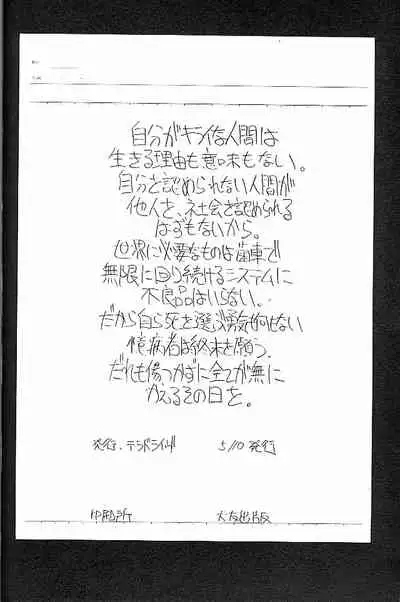 自分がキライな人間は
生きる理由も意味もない。
自分を認められない人間が
他人を、社会を認められる
はずもないから。
世界に必要なものは歯車で
無限に回り続けるシステムに
不良品はいらない。
だから自ら死を選ぶ勇気も持てない
臆病者は終末を願う。
だれも傷つかずに全てが無に
かえるその日を。
発行.テラドライヴ 5/10 発行
印刷所 犬友出版